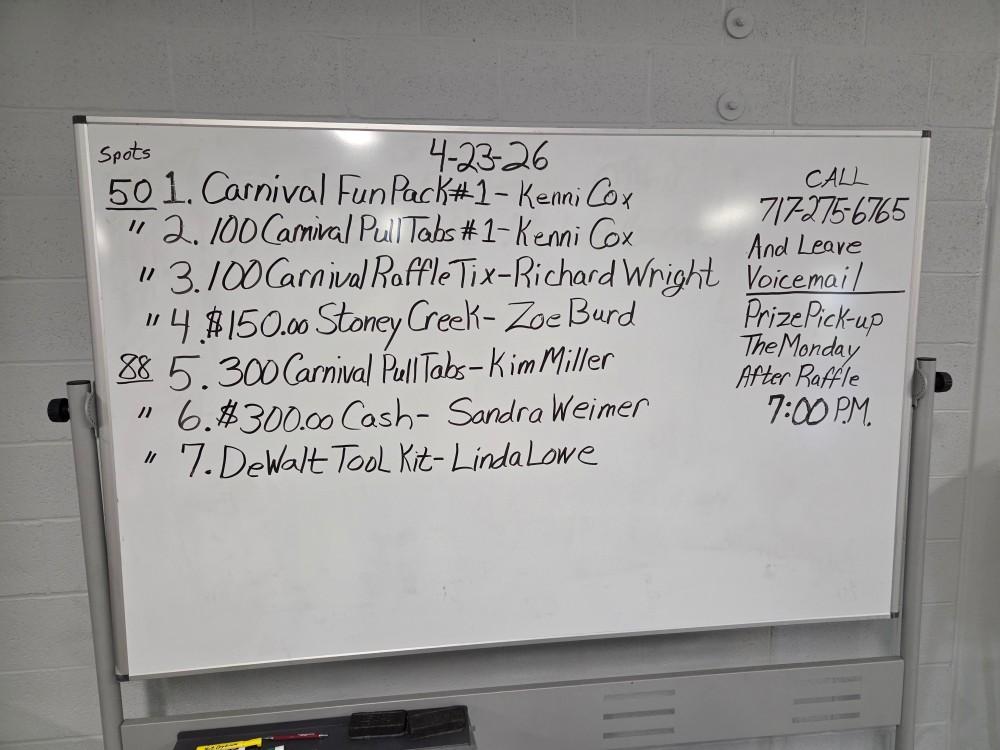 Spots
4-23-26
50 1. Carnival Fun Pack #1 - Kenni Cox
" 2. 100 Carnival Pull Tabs #1 - Kenni Cox
" 3. 100 Carnival Raffle Tix - Richard Wright
" 4. $150.00 Stoney Creek - Zoe Burd
88 5. 300 Carnival Pull Tabs - Kim Miller
" 6. $300.00 Cash - Sandra Weimer
" 7. DeWalt Tool Kit - Linda Lowe
CALL
717-275-6765
And Leave
Voicemail
Prize Pick-up
The Monday
After Raffle
7:00 P.M.